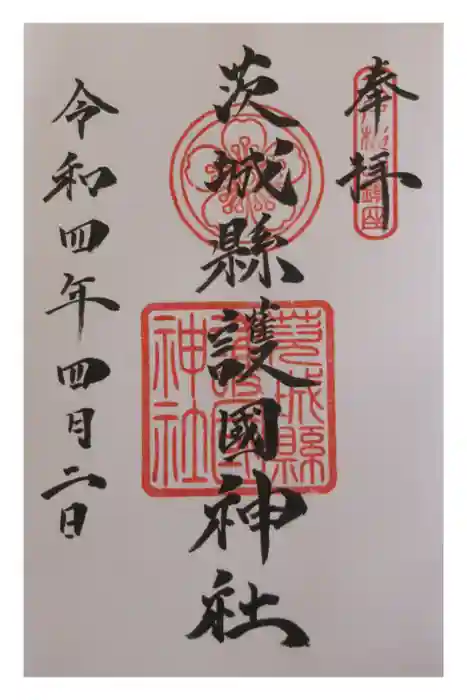 奉拝
茨城縣護國神社
茨城縣
護國
神社
令和四年四月二日